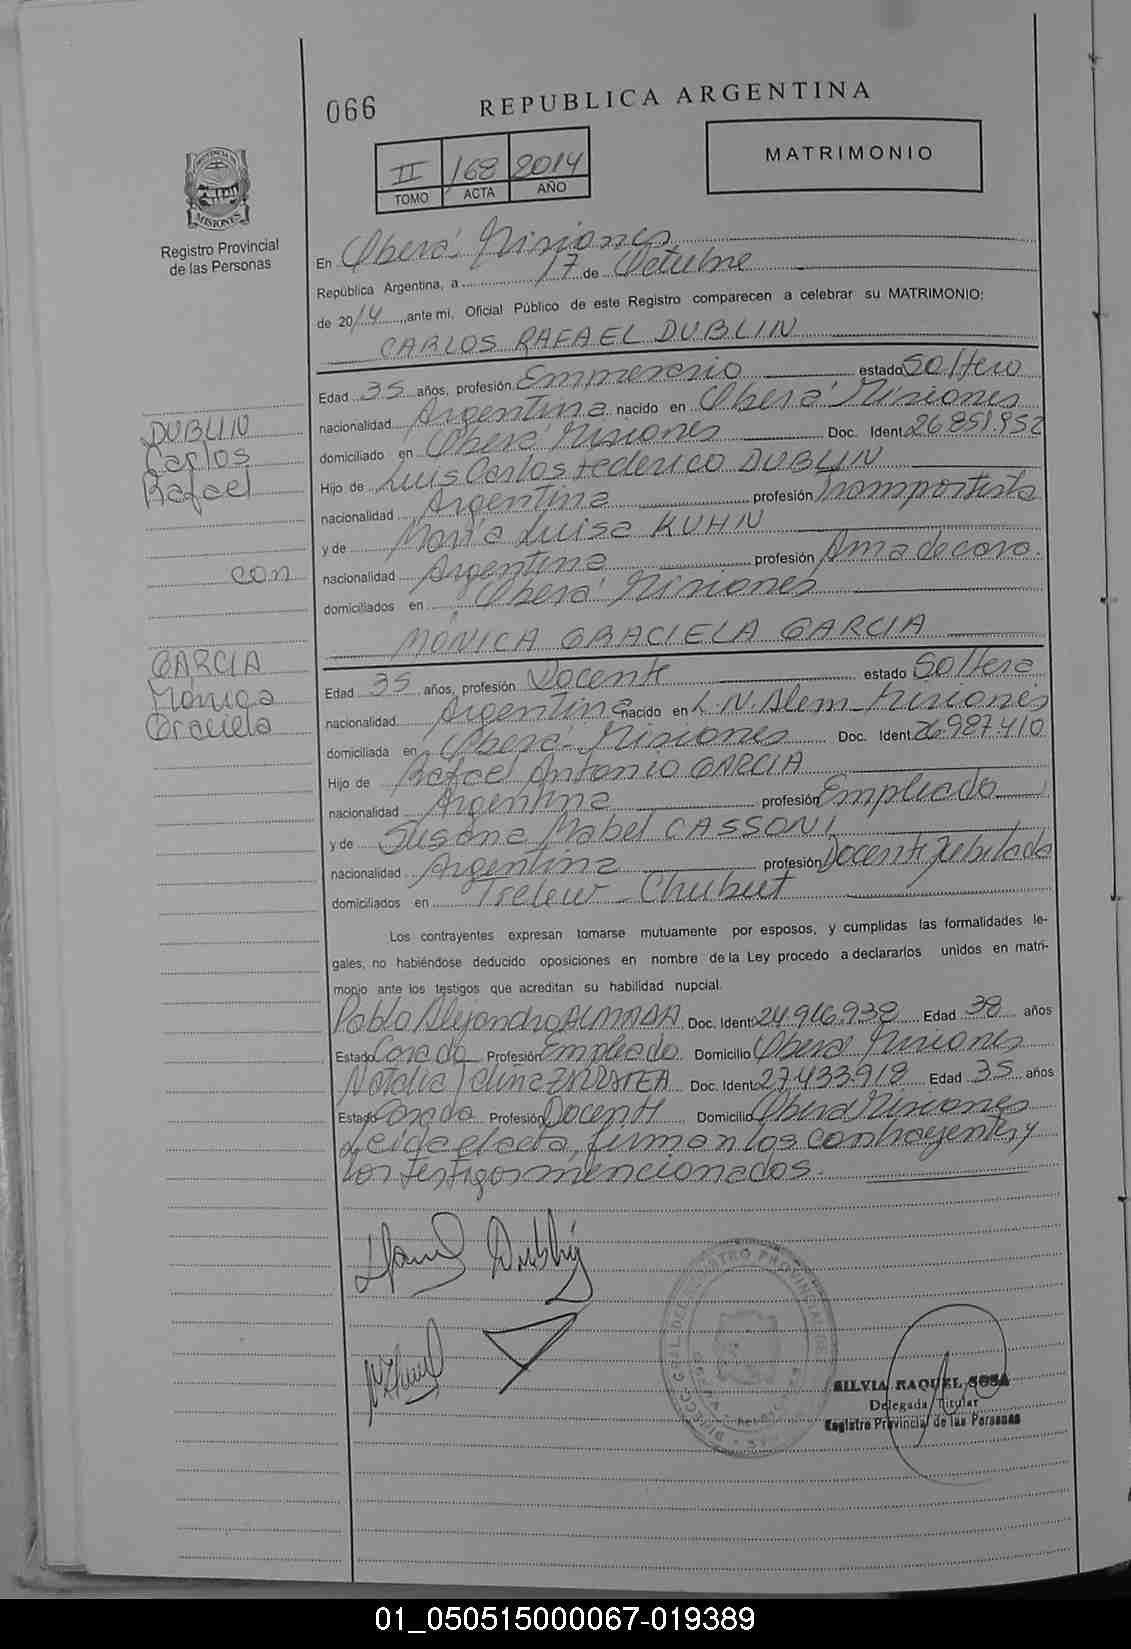 066
REPUBLICA ARGENTINA
II 168 2014
TOMO ACTA AÑO
MATRIMONIO
PROVINCIA DE
MISIONES
Registro Provincial
de las Personas
En Oberá Misiones
República Argentina, a 17 de Octubre
de 2014, ante mi, Oficial Público de este Registro comparecen a celebrar su MATRIMONIO:
CARLOS RAFAEL DUBLIN
Edad 35 años, profesión estado Soltero
nacionalidad Argentina nacido en Oberá Misiones
domiciliado en Oberá Misiones Doc. Ident. 26.851.952
Hijo de Luis Carlos Federico DUBLIN
nacionalidad Argentina profesión Transportista
y de María Luisa KUHN
nacionalidad Argentina profesión Ama de casa.
domiciliados en Oberá Misiones
DUBLIN
Carlos
Rafael
con
GARCIA
Mónica
Graciela
MÓNICA GRACIELA GARCIA
Edad 35 años, profesión Docente estado Soltera
nacionalidad Argentina nacido en L.N. Alem - Misiones
domiciliada en Oberá - Misiones Doc. Ident. 26.987.410
Hijo de Rafael Antonio GARCIA
nacionalidad Argentina profesión Empleado
y de Susana Mabel CASSONI
nacionalidad Argentina profesión Docente Jubilada
domiciliados en Trelew - Chubut
Los contrayentes expresan tomarse mutuamente por esposos, y cumplidas las formalidades le-
gales, no habiéndose deducido oposiciones en nombre de la Ley procedo a declararlos unidos en matri-
monio ante los testigos que acreditan su habilidad nupcial.
Pablo Alejandro Doc. Ident. 24.916.938 Edad 38 años
Estado Casado Profesión Empleado Domicilio Oberá Misiones
Natalia ZARRATEA Doc. Ident. 27.433.918 Edad 35 años
Estado Casada Profesión Docente Domicilio Oberá Misiones
Leida el acta, firman los contrayentes y
los testigos mencionados.
SILVIA RAQUEL SOSA
Delegada Titular
Registro Provincial de las Personas
01_050515000067-019389